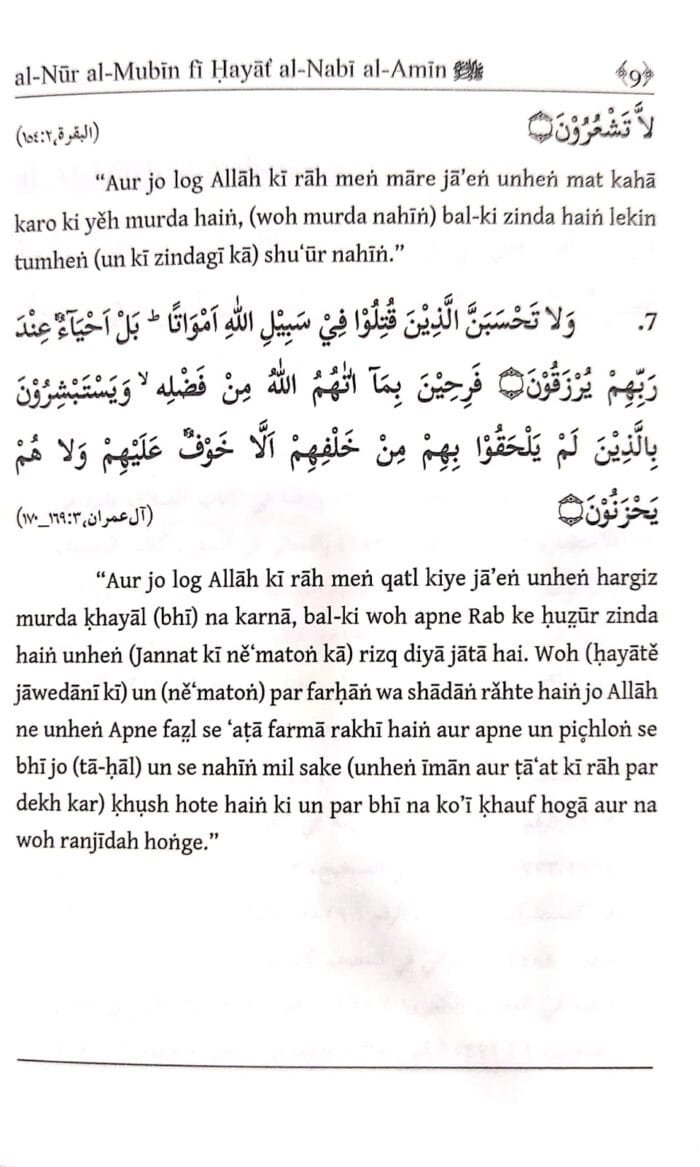 al-Nūr al-Mubīn fī Ḥayāt al-Nabī al-Amīn ﷺ ﴾9﴿
لاَّ تَشْعُرُوْنَ۝ (البقرة، ٢:١٥٤)
“Aur jo log Allāh kī rāh meṅ māre jā’eṅ unheṅ mat kahā
karo ki yěh murda haiṅ, (woh murda nahīṅ) bal-ki zinda haiṅ lekin
tumheṅ (un kī zindagī kā) shu‘ūr nahīṅ.”
7. وَلاَ تَحْسَبَنَّ الَّذِيْنَ قُتِلُوْا فِيْ سَبِيْلِ اللهِ اَمْوَاتًا ؕ بَلْ اَحْيَآءٌ عِنْدَ
رَبِّهِمْ يُرْزَقُوْنَ۝ فَرِحِيْنَ بِمَآ اٰتٰهُمُ اللهُ مِنْ فَضْلِهٖ ۙ وَيَسْتَبْشِرُوْنَ
بِالَّذِيْنَ لَمْ يَلْحَقُوْا بِهِمْ مِنْ خَلْفِهِمْ اَلَّا خَوْفٌ عَلَيْهِمْ وَلاَ هُمْ
يَحْزَنُوْنَ۝ (آل عمران، ٣:١٦٩_١٧٠)
“Aur jo log Allāh kī rāh meṅ qatl kiye jā’eṅ unheṅ hargiz
murda ḳhayāl (bhī) na karnā, bal-ki woh apne Rab ke ḥuẓūr zinda
haiṅ unheṅ (Jannat kī ně‘matoṅ kā) rizq diyā jātā hai. Woh (ḥayātě
jāwedānī kī) un (ně‘matoṅ) par farḥāṅ wa shādāṅ rǎhte haiṅ jo Allāh
ne unheṅ Apne faẓl se ‘aṭā farmā rakhī haiṅ aur apne un piçhloṅ se
bhī jo (tā-ḥāl) un se nahīṅ mil sake (unheṅ īmān aur ṭā‘at kī rāh par
dekh kar) ḳhụsh hote haiṅ ki un par bhī na ko’ī ḳhauf hogā aur na
woh ranjīdah hoṅge.”